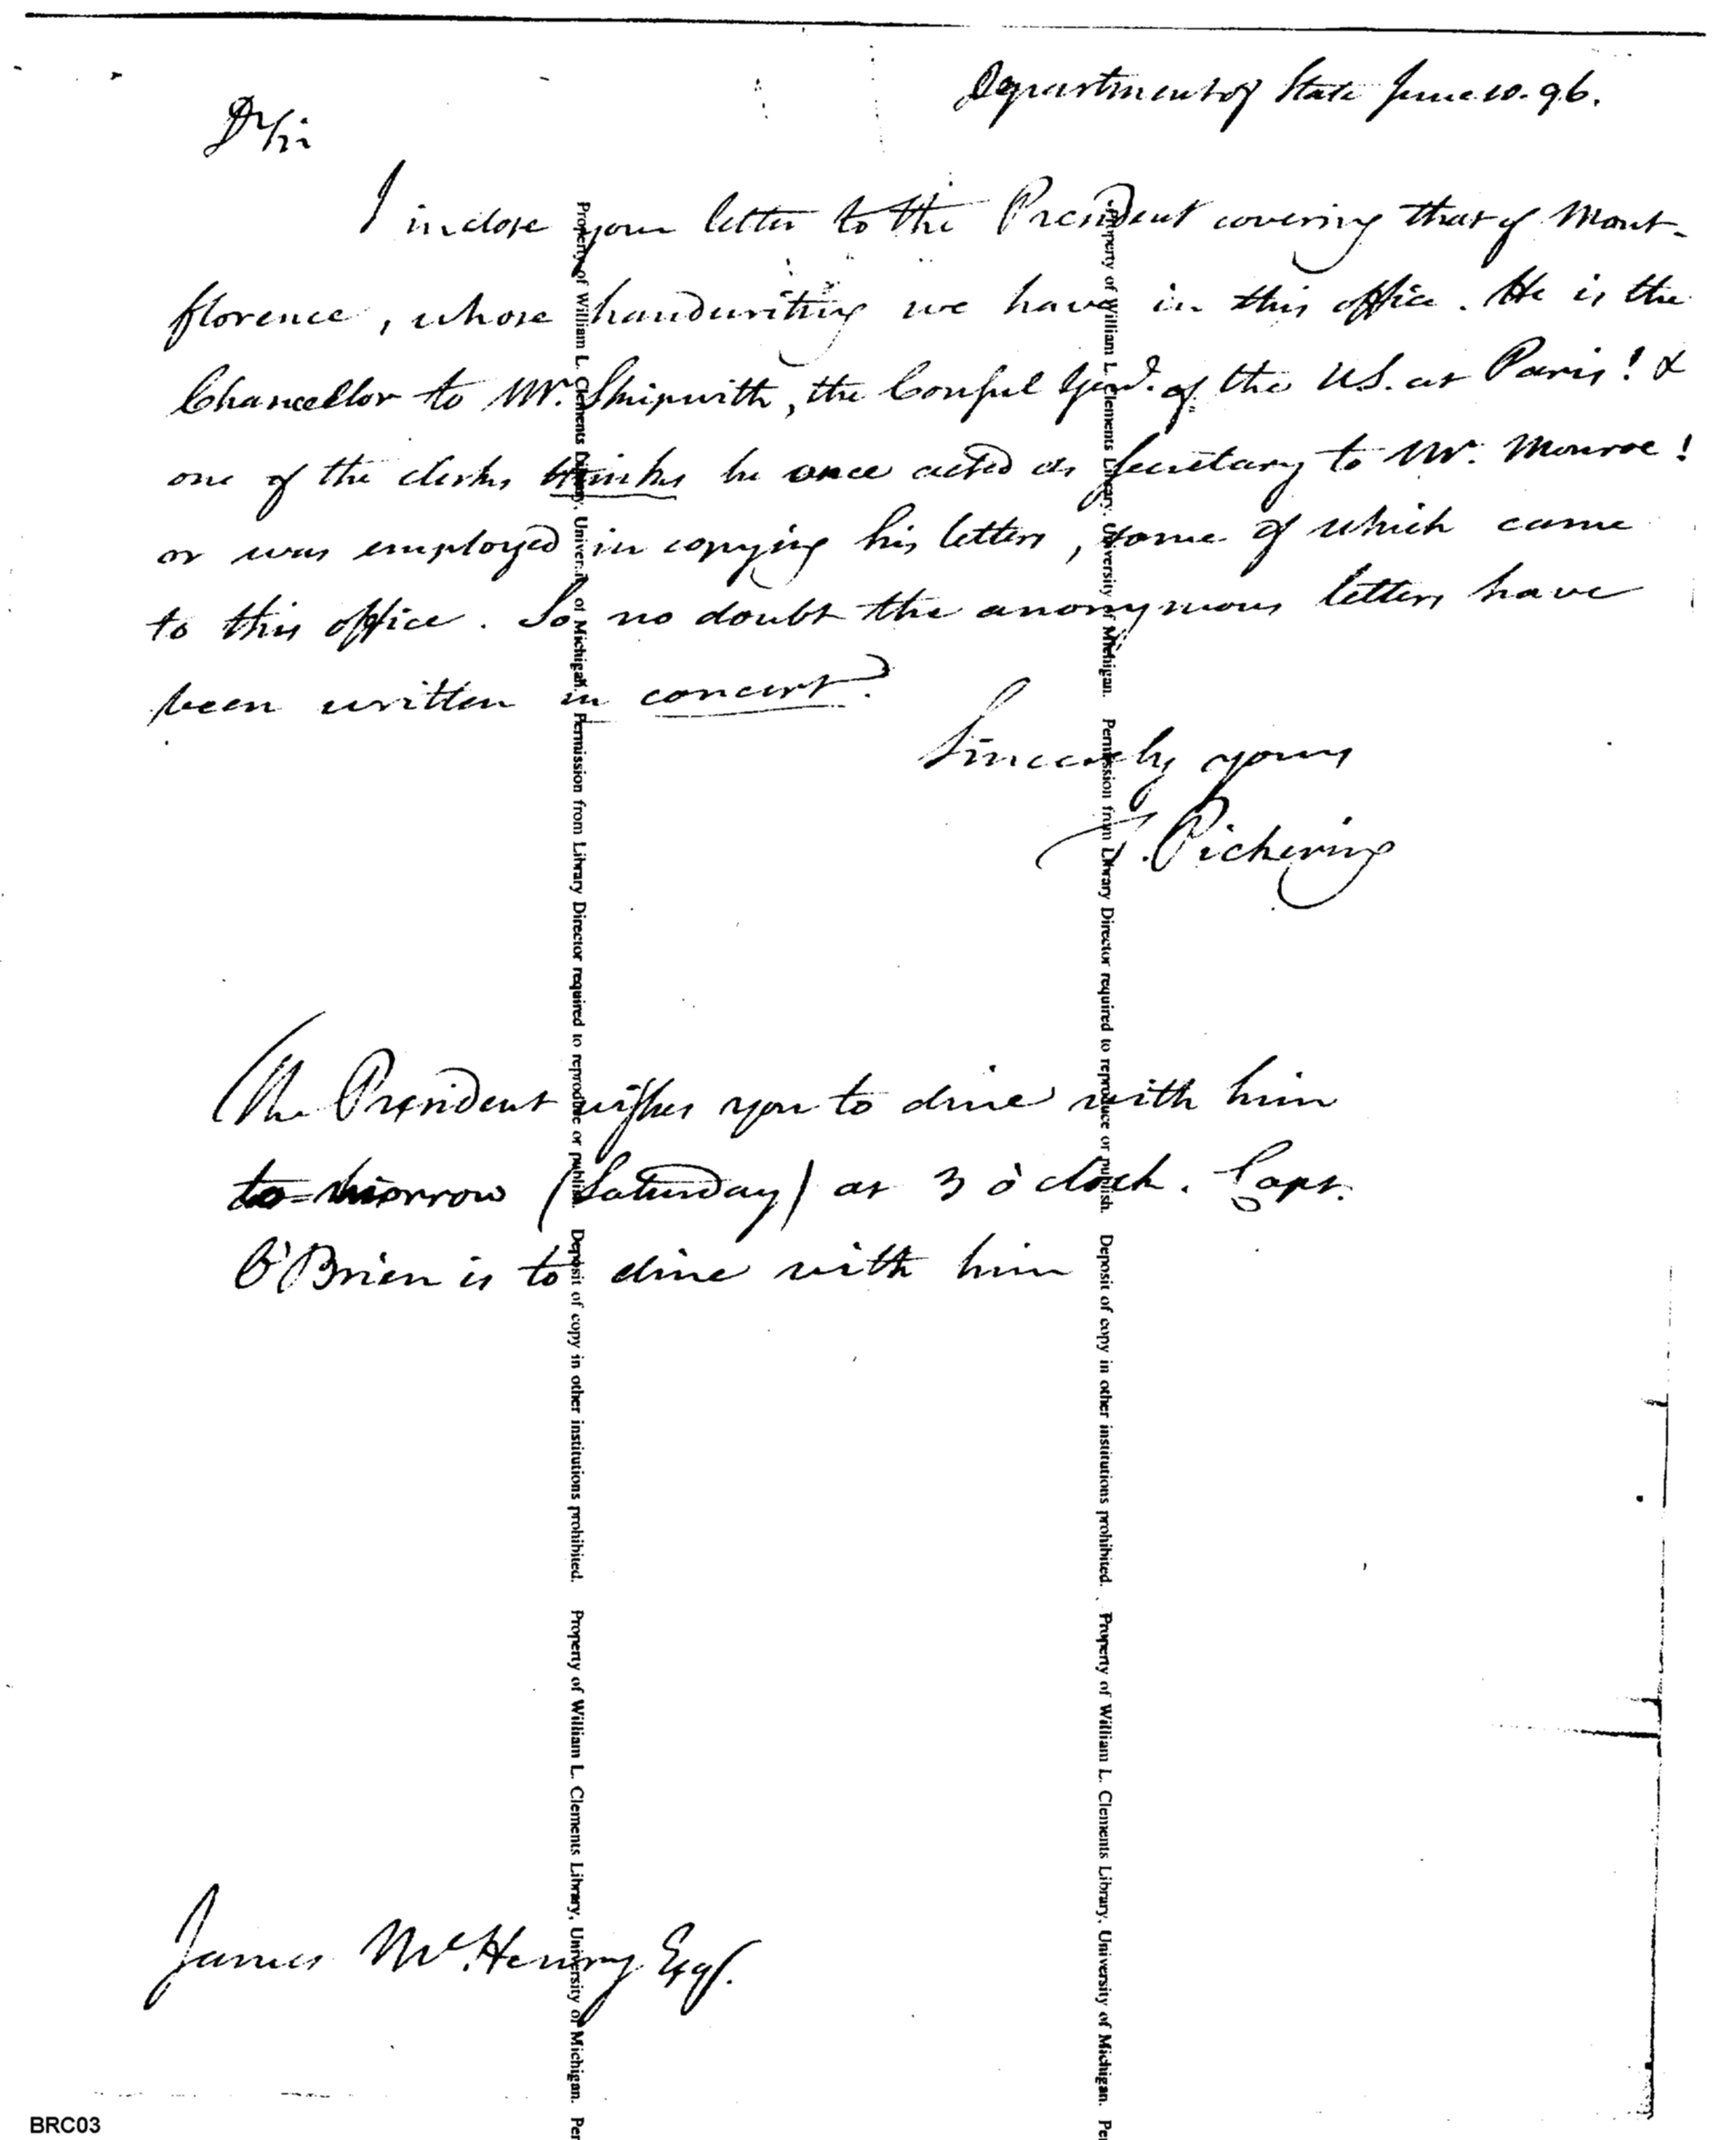 Department of State June 10. 96.
Dr Sir
I inclose your letter to the President covering that of Mont-
florence, whose handwriting we have in this office. He is the
Chancellor to Mr. Skipwith, the Consul Genl. of the U.S. at Paris! &
one of the clerks thinks he once acted as secretary to Mr. Monroe!
or was employed in copying his letters, some of which came
to this office. So no doubt the anonymous letters have
been written in concert?
Sincerely yours
T. Pickering
The President wishes you to dine with him
to-morrow (Saturday) at 3 o'clock. Capt.
O'Brien is to dine with him
James McHenry Esqr.
Property of William L. Clements Library, University of Michigan. Permission from Library Director required to reproduce or publish. Deposit of copy in other institutions prohibited. Property of William L. Clements Library, University of Michigan. Per
Property of William L. Clements Library, University of Michigan. Permission from Library Director required to reproduce or publish. Deposit of copy in other institutions prohibited. Property of William L. Clements Library, University of Michigan. Per
BRC03